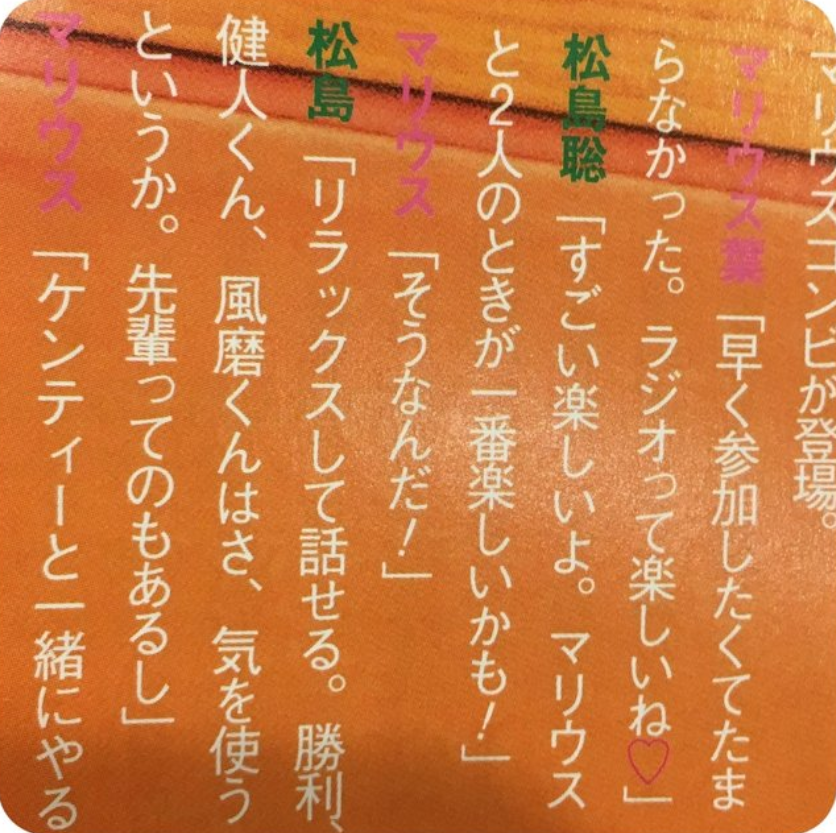 マリウスコンビが登場。
マリウス葉「早く参加したくてたま
らなかった。ラジオって楽しいね♡」
松島聡「すごい楽しいよ。マリウス
と2人のときが一番楽しいかも！」
マリウス「そうなんだ！」
松島「リラックスして話せる。勝利、
健人くん、風磨くんはさ、気を使う
というか。先輩ってのもあるし」
マリウス「ケンティーと一緒にやる